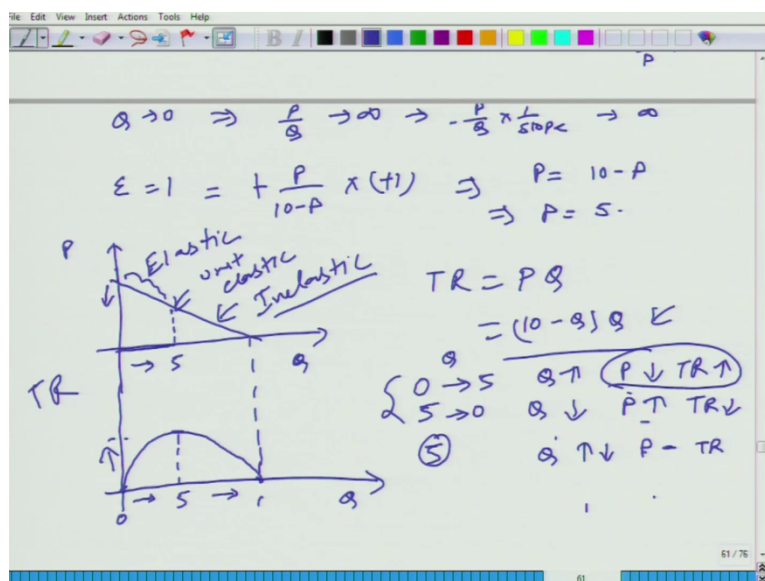 File Edit View Insert Actions Tools Help
P
Q → 0 ⇒ P/Q → ∞ → - P/Q × 1/slope → ∞
ε = 1 = + P/(10-P) × (+1) ⇒ P = 10 - P
⇒ P = 5.
P
Elastic
unit
elastic
Inelastic
→ 5 Q
TR = PQ
= (10 - Q) Q
Q
0 → 5 Q ↑ P ↓ TR ↑
5 → 0 Q ↓ P ↑ TR ↓
5 Q ↑↓ P - TR
TR
0 → 5 → Q
61 / 76
61